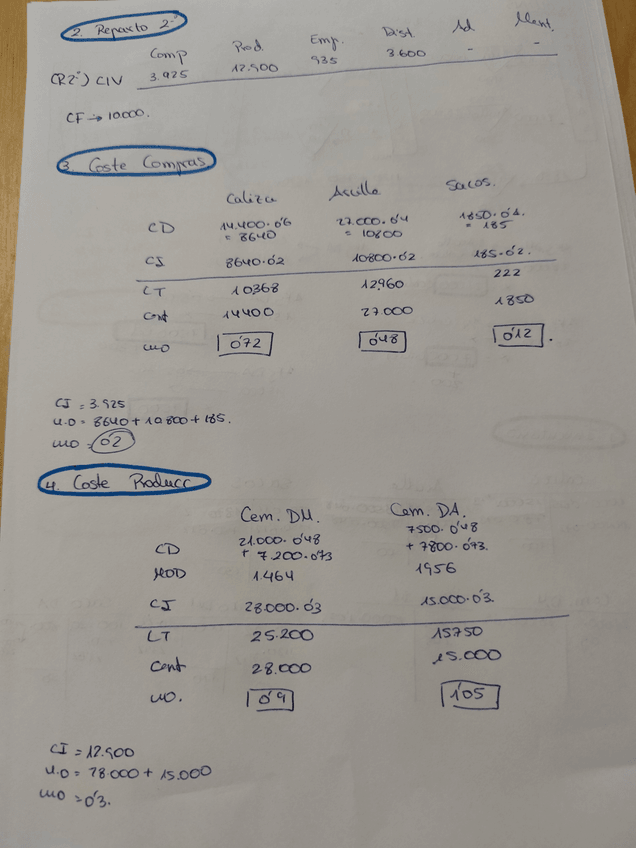 2. Reparto 2º
Comp Prod. Emp. Dist. Ad Mant.
(R2º) CIV 3.925 12.900 935 3.600 - -
CF → 10000.
3. Coste Compras
Caliza Arcilla Sacos.
CD 14.400·0'6 27.000·0'4 1850·0'1.
= 8640 = 10800 = 185
CI 8640·0'2 10800·0'2 185·0'2.
CT 10368 12960 222
Cant 14400 27.000 1850
uo 0'72 0'48 0'12.
CI = 3.925
u.o = 8640 + 10.800 + 185.
uo = 0'2
4. Coste Producc
Cem. DM. Cem. DA.
CD 21.000·0'48 7500·0'48
+ 7.200·0'73 + 7800·0'73.
MOD 1.464 1956
CI 28.000·0'3 15.000·0'3.
CT 25.200 15750
Cant 28.000 15.000
uo. 0'9 1'05
CI = 12.900
u.o = 28.000 + 15.000
uo = 0'3.